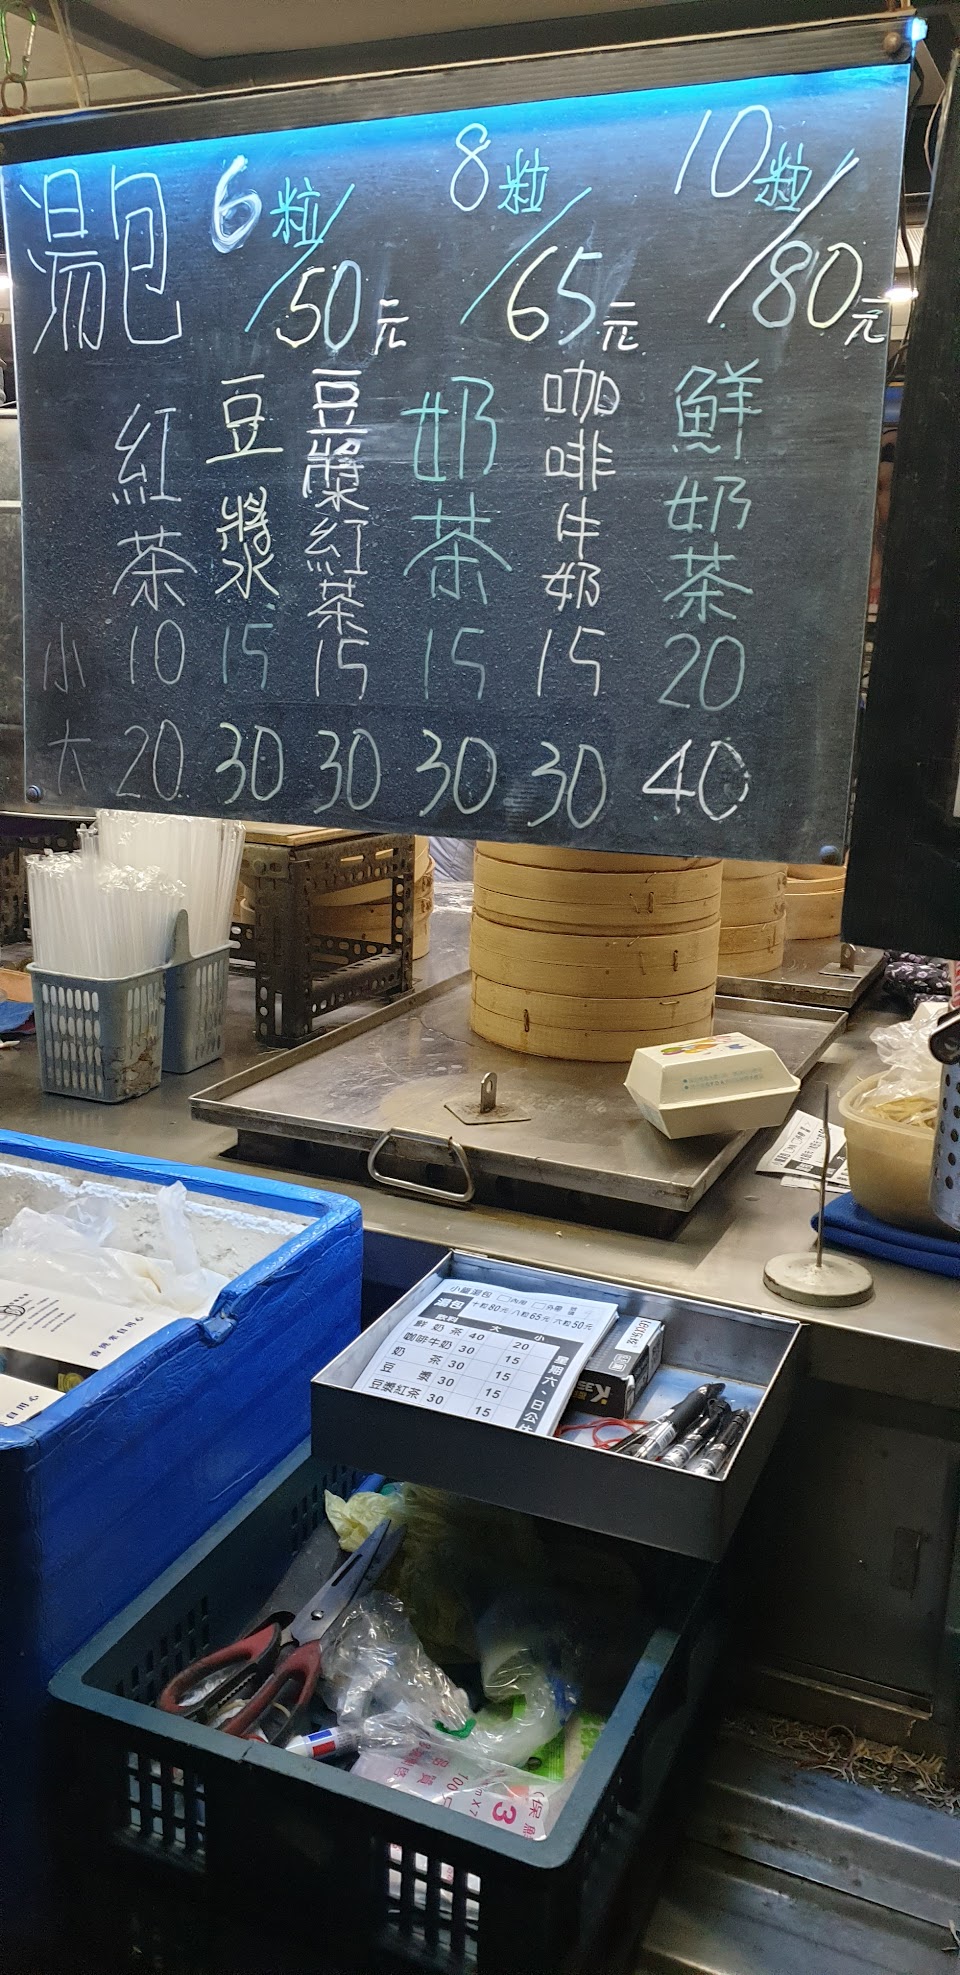 湯包 6粒/50元 8粒/65元 10粒/80元
紅茶 豆漿 豆漿紅茶 奶茶 咖啡牛奶 鮮奶茶
小 10 15 15 15 15 20
大 20 30 30 30 30 40
小籠湯包 □內用 □外帶
湯包 十粒80元/八粒65元 六粒50元
飲料 大 小
鮮奶茶 40 20
咖啡牛奶 30 15
奶茶 30 15
豆漿 30 15
豆漿紅茶 30 15
星期六、日公休
自用心
100
3